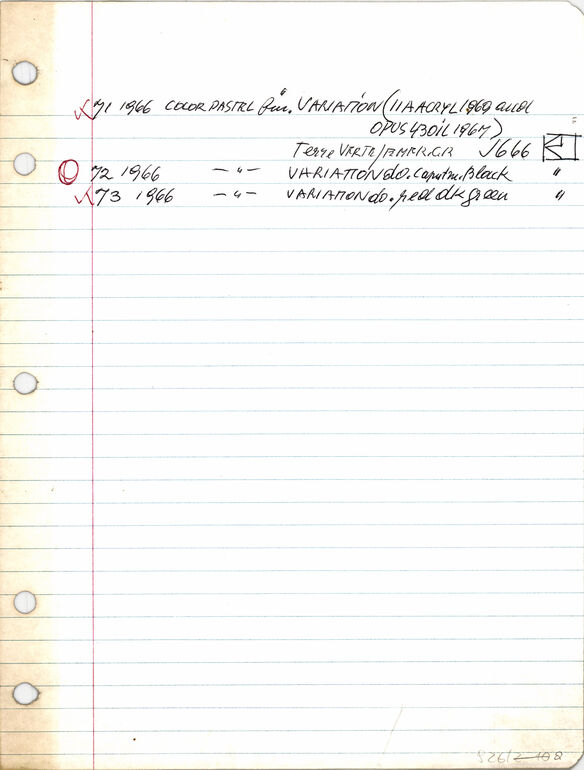 71 1966 COLOR PASTEL fin. VARIATION (11A ACRYL 1969 and
OPUS 43 OIL 1967)
Terre VERTE / AMER.GR J666
72 1966 — " — VARIATION do. caput m. Black "
73 1966 — " — VARIATION do. red dk green "